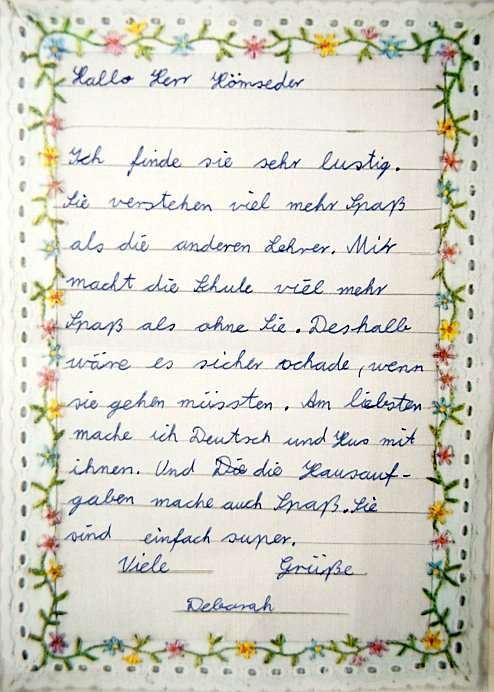 Hallo Herr Hömseder
Ich finde sie sehr lustig.
Sie verstehen viel mehr Spaß
als die anderen Lehrer. Mir
macht die Schule viel mehr
Spaß als ohne Sie. Deshalb
wäre es sicher schade, wenn
sie gehen müssten. Am liebsten
mache ich Deutsch und Hus mit
ihnen. Und Die die Hausauf-
gaben mache auch Spaß. Sie
sind einfach super.
Viele Grüße
Deborah